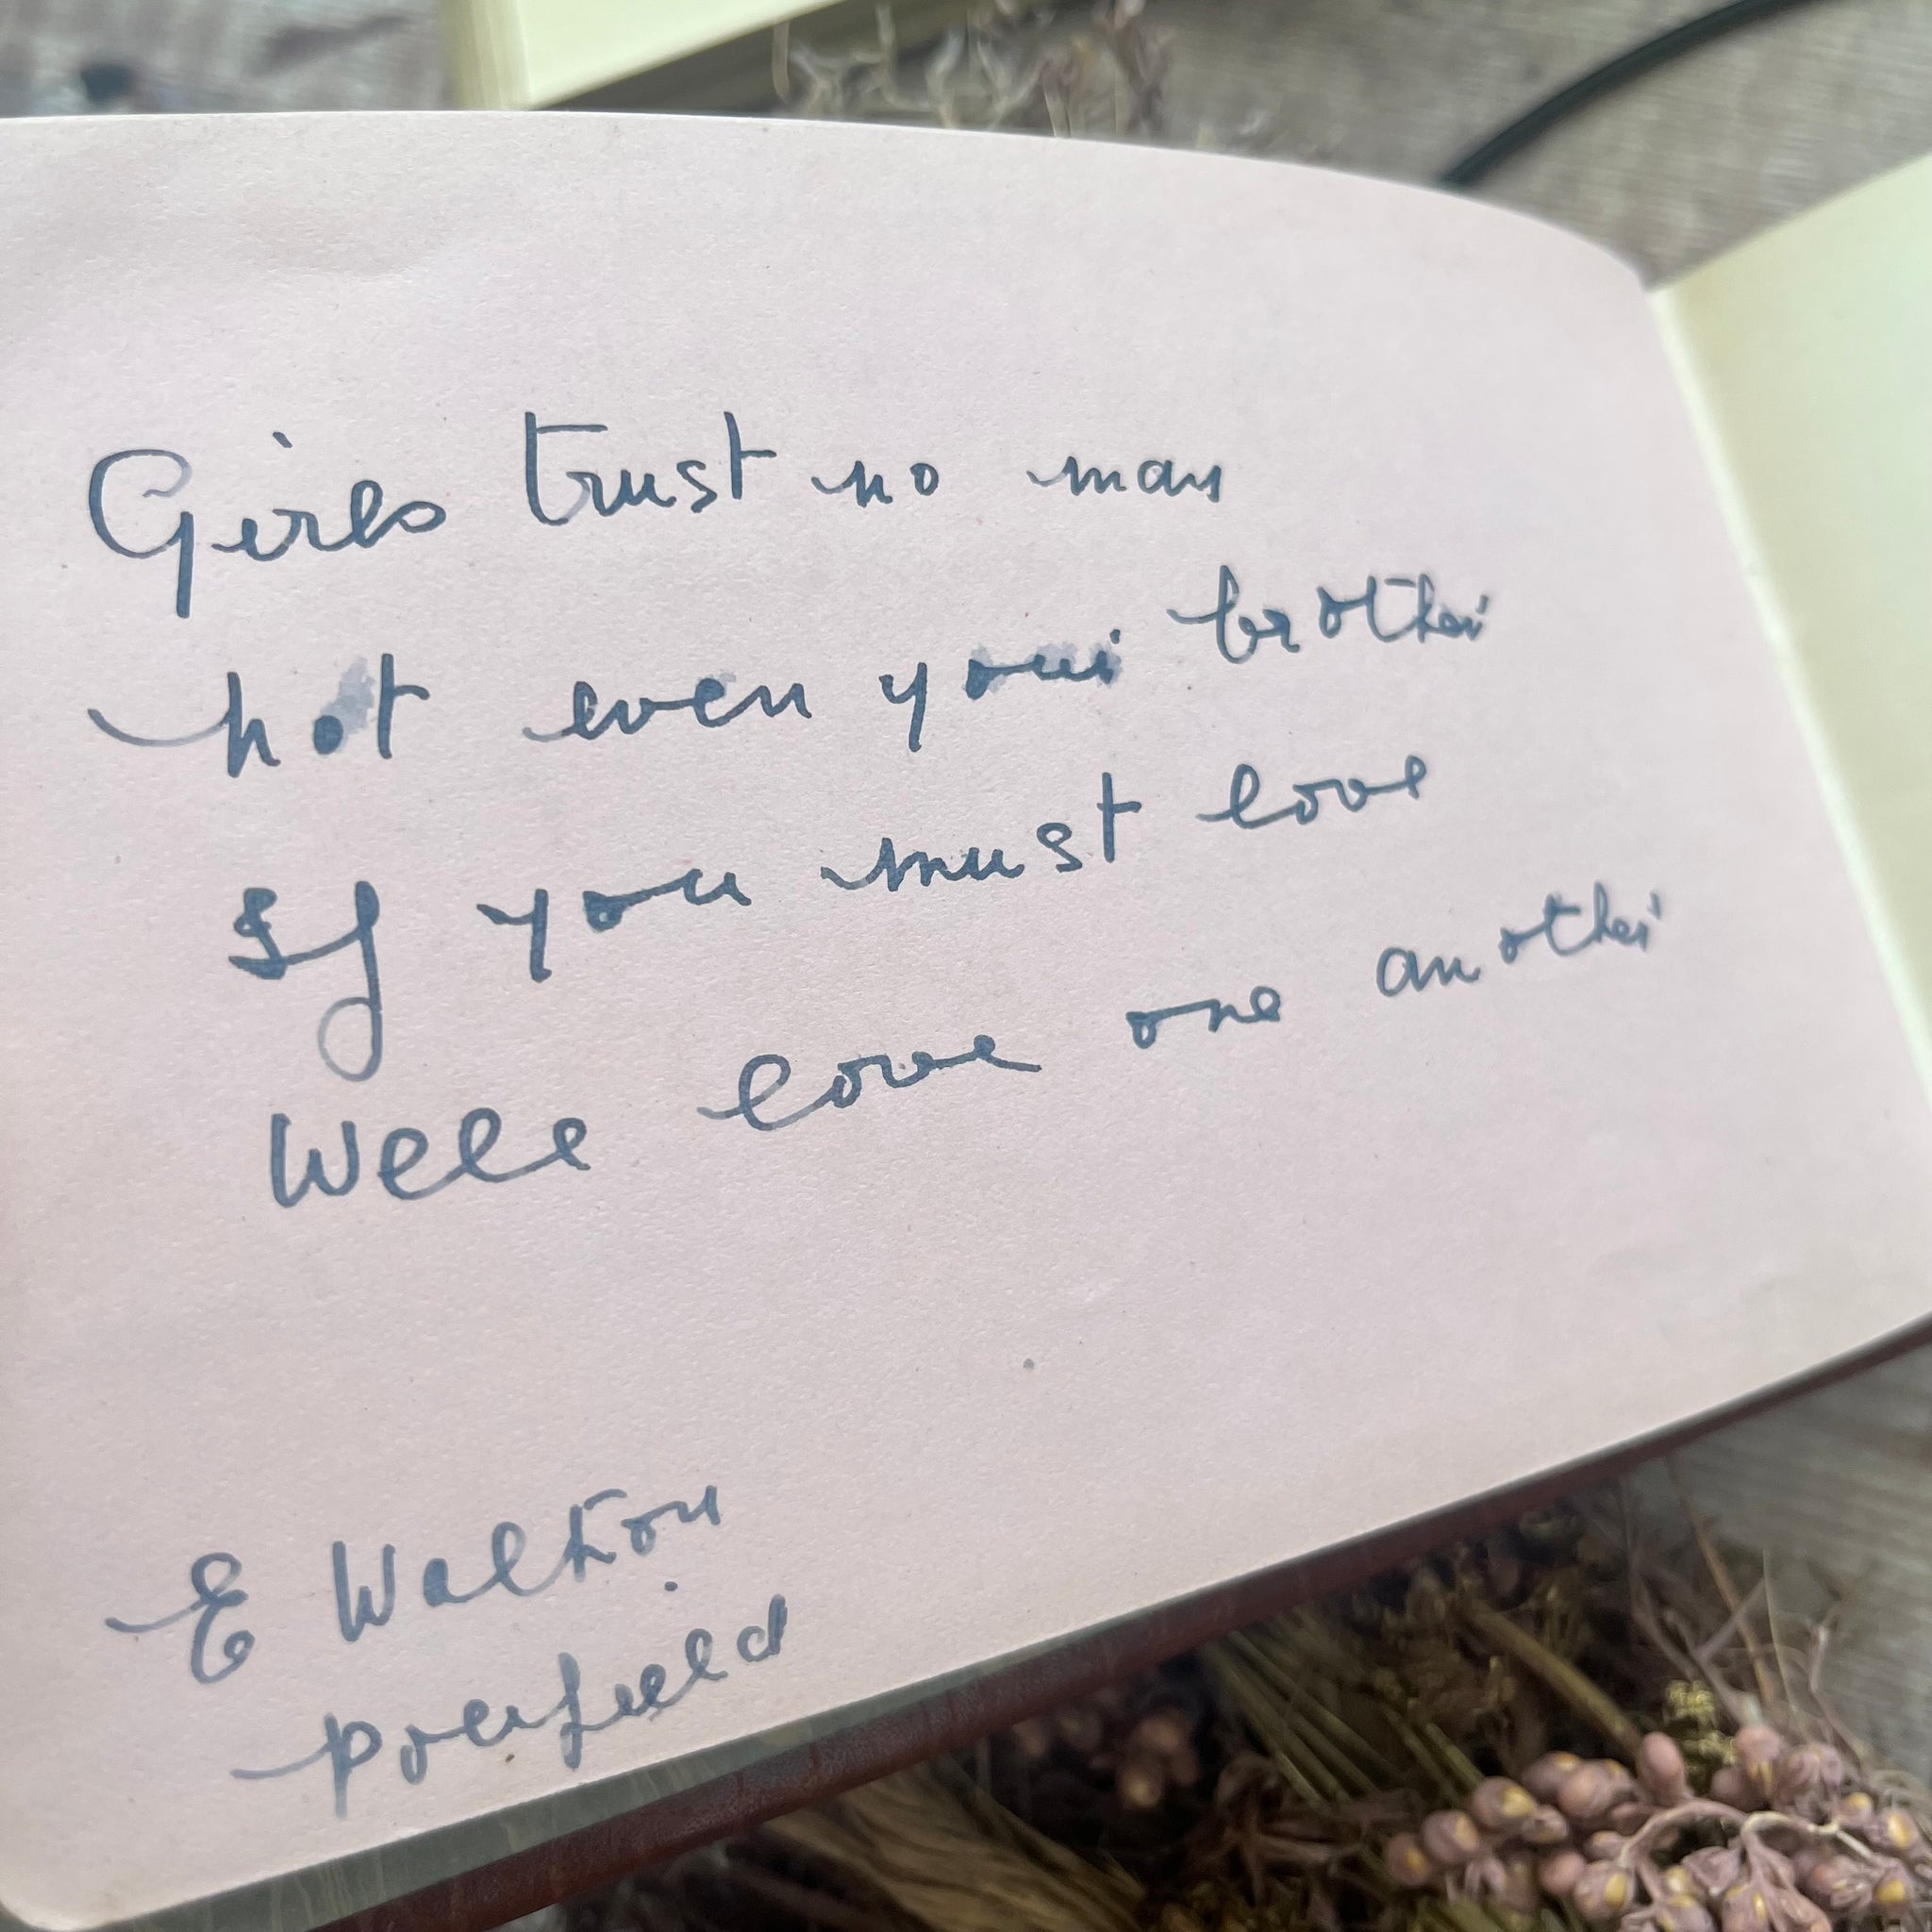 Girls trust no man
not even your brother
If you must love
Well love one another
E Walton